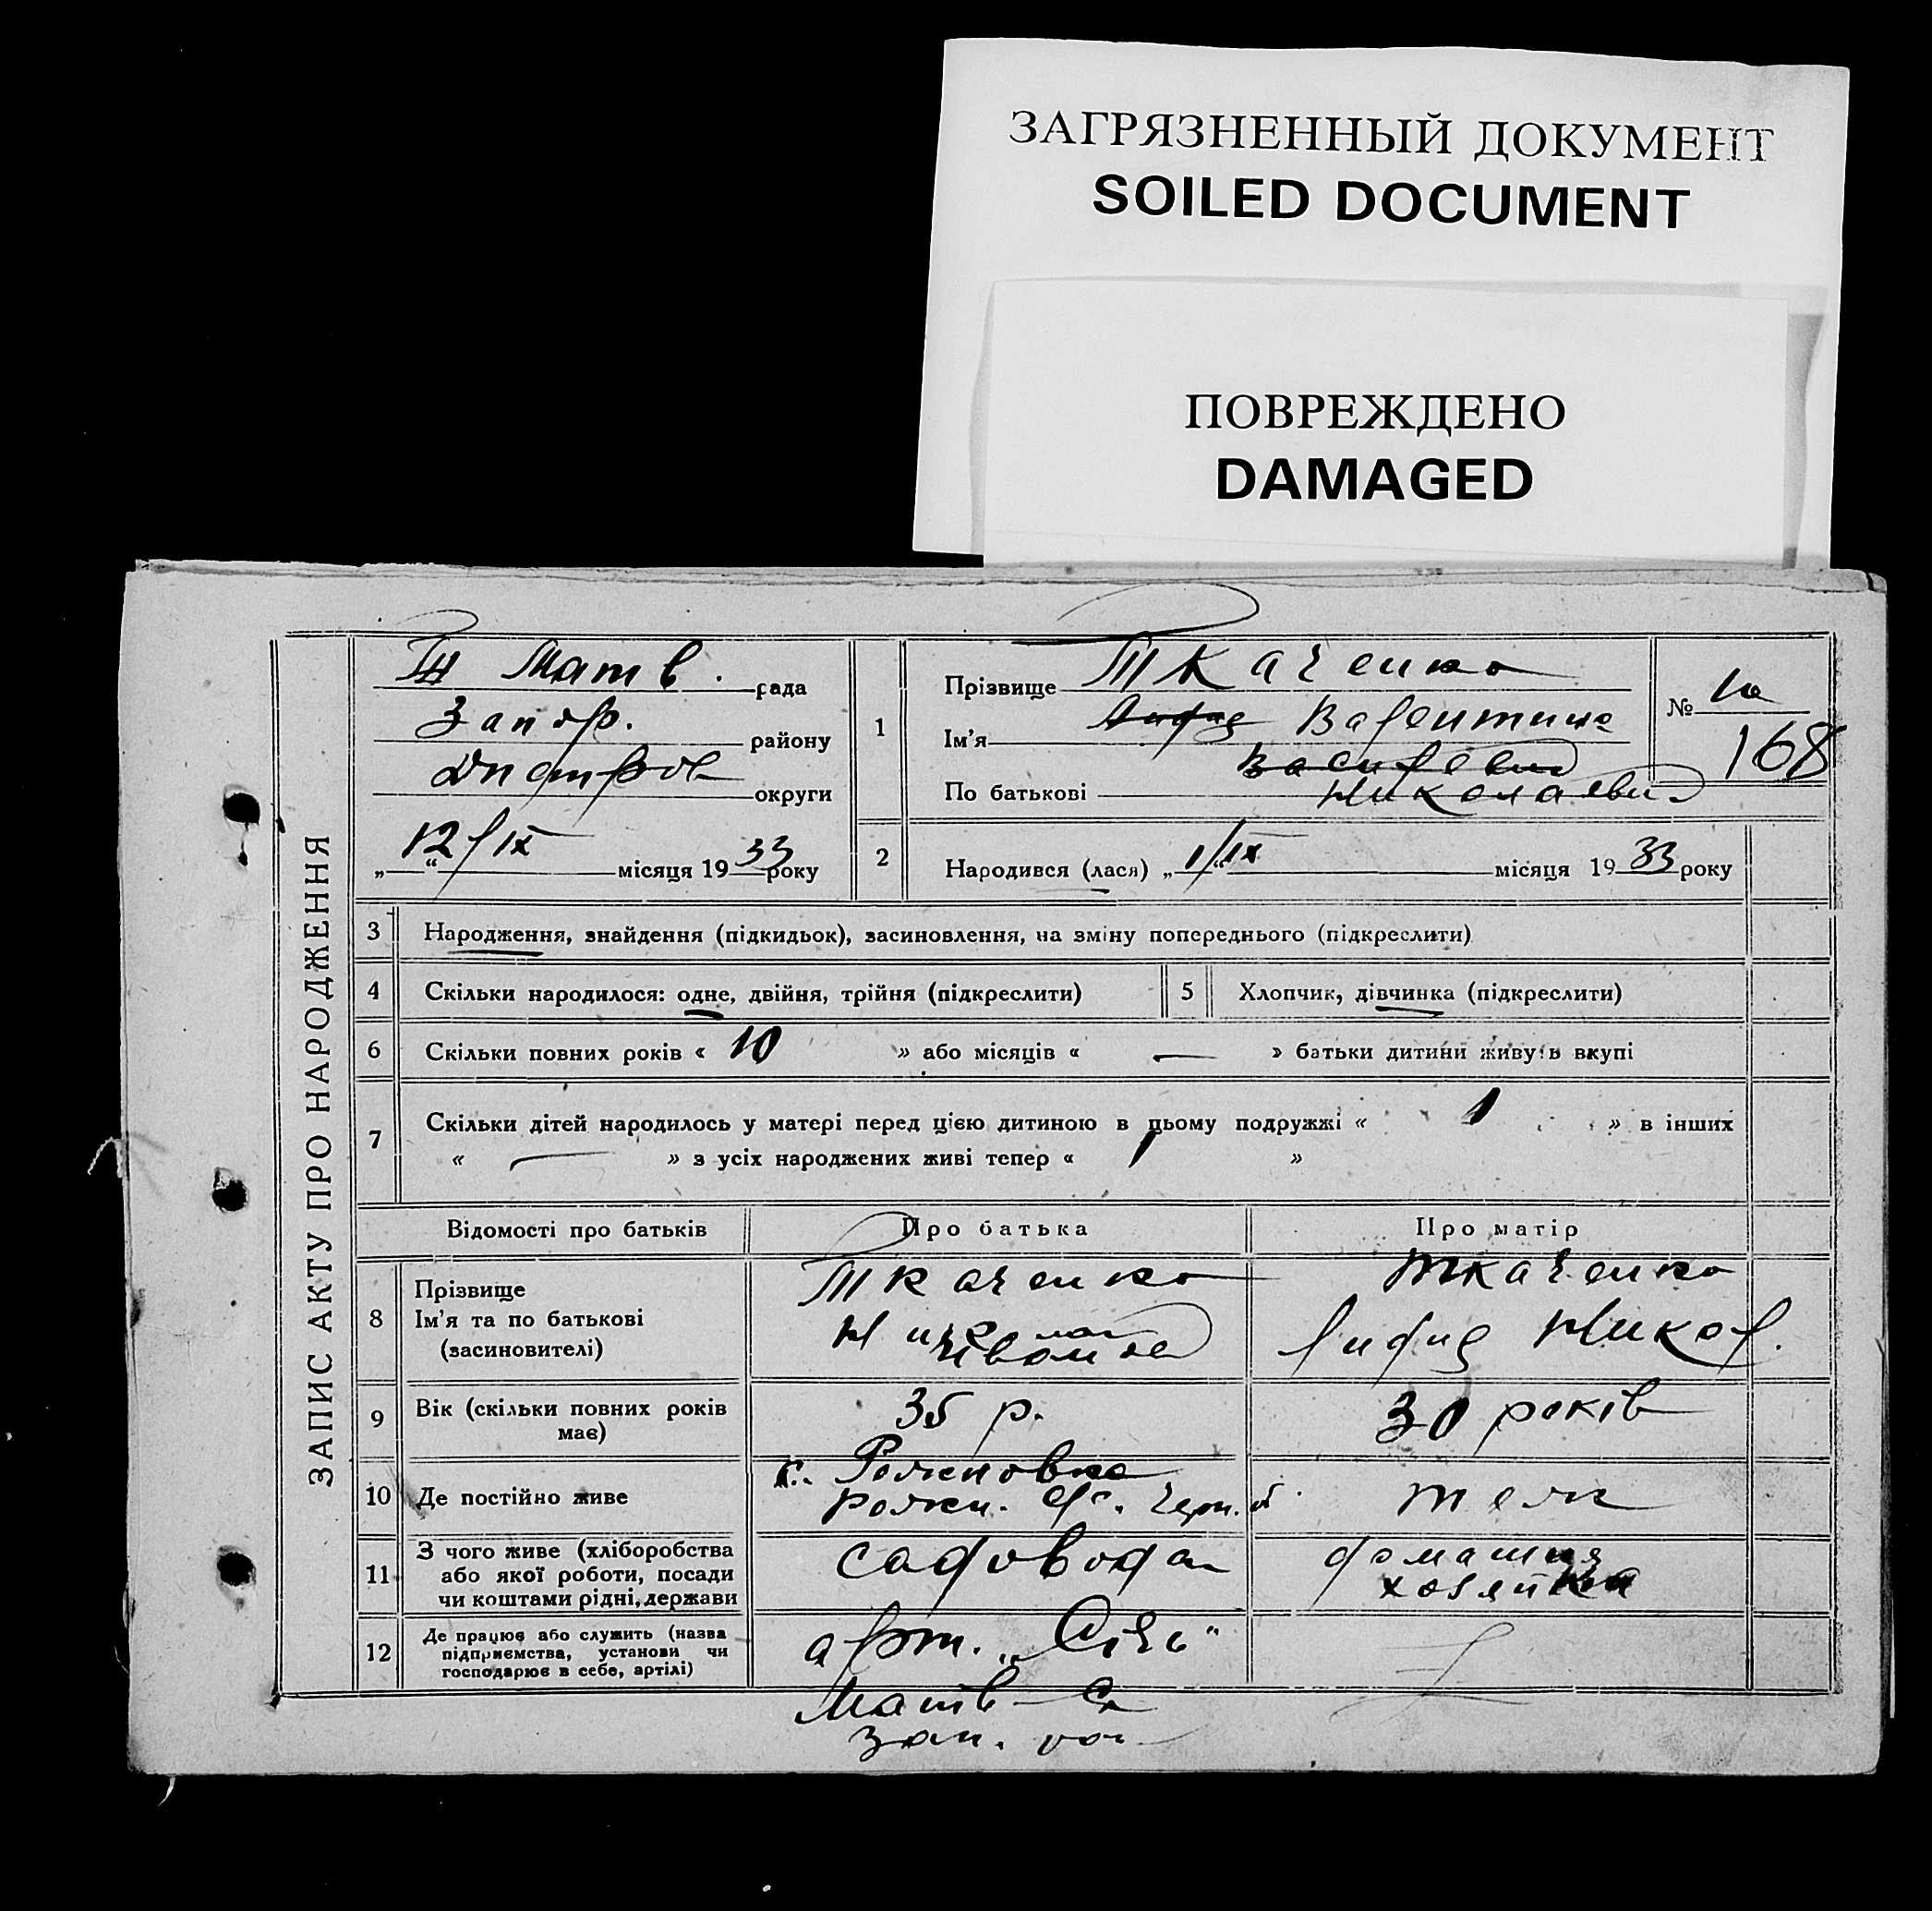 ЗАГРЯЗНЕННЫЙ ДОКУМЕНТ
SOILED DOCUMENT
ПОВРЕЖДЕНО
DAMAGED
ЗАПИС АКТУ ПРО НАРОДЖЕННЯ
Матв. рада
Запор. району
Днепров округи
„12“/IX місяця 1933 року
1
Прізвище Ткаченко
Ім'я Лидия Валентина
Василевна
По батькові Николаевна
№ 1а
168
2
Народився (лася) „1/IX місяця 1933 року
3 Народження, знайдення (підкидьок), засиновлення, на зміну попереднього (підкреслити)
4 Скільки народилося: одне, двійня, трійня (підкреслити)
5 Хлопчик, дівчинка (підкреслити)
6 Скільки повних років « 10 » або місяців « — » батьки дитини живуть вкупі
7 Скільки дітей народилось у матері перед цією дитиною в цьому подружжі « 1 » в інших
« — » з усіх народжених живі тепер « 1 »
Відомості про батьків Про батька Про матір
8 Прізвище
Ім'я та по батькові
(засновителі)
Ткаченко
Николай
Иванов
Ткаченко
Лидия Никол.
9 Вік (скільки повних років
має)
35 р.
30 років
10 Де постійно живе
с. Рожновка
рожн. с/с. Черн. об.
теж
11 З чого живе (хліборобства
або якої роботи, посади
чи коштами рідні, держави
садовода
домашня
хозяйка
12 Де працює або служить (назва
підприємства, установи чи
господарює в себе, артілі)
арт. „Січь"
Матв — Ск
Зап. рай.